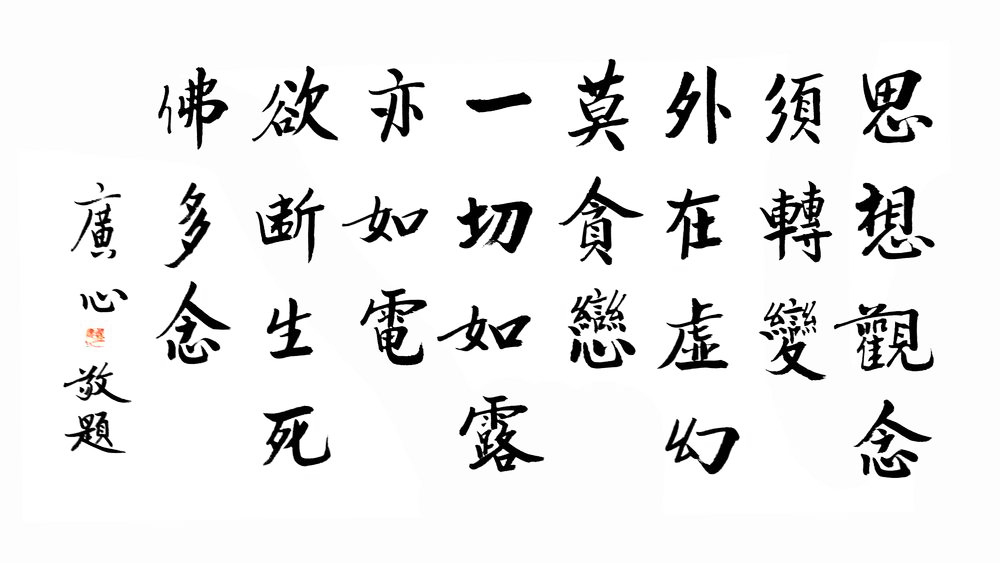 思想觀念
須轉變
外在虛幻
莫貪戀
一切如露
亦如電
欲断生死
佛多念
廣心
敬題